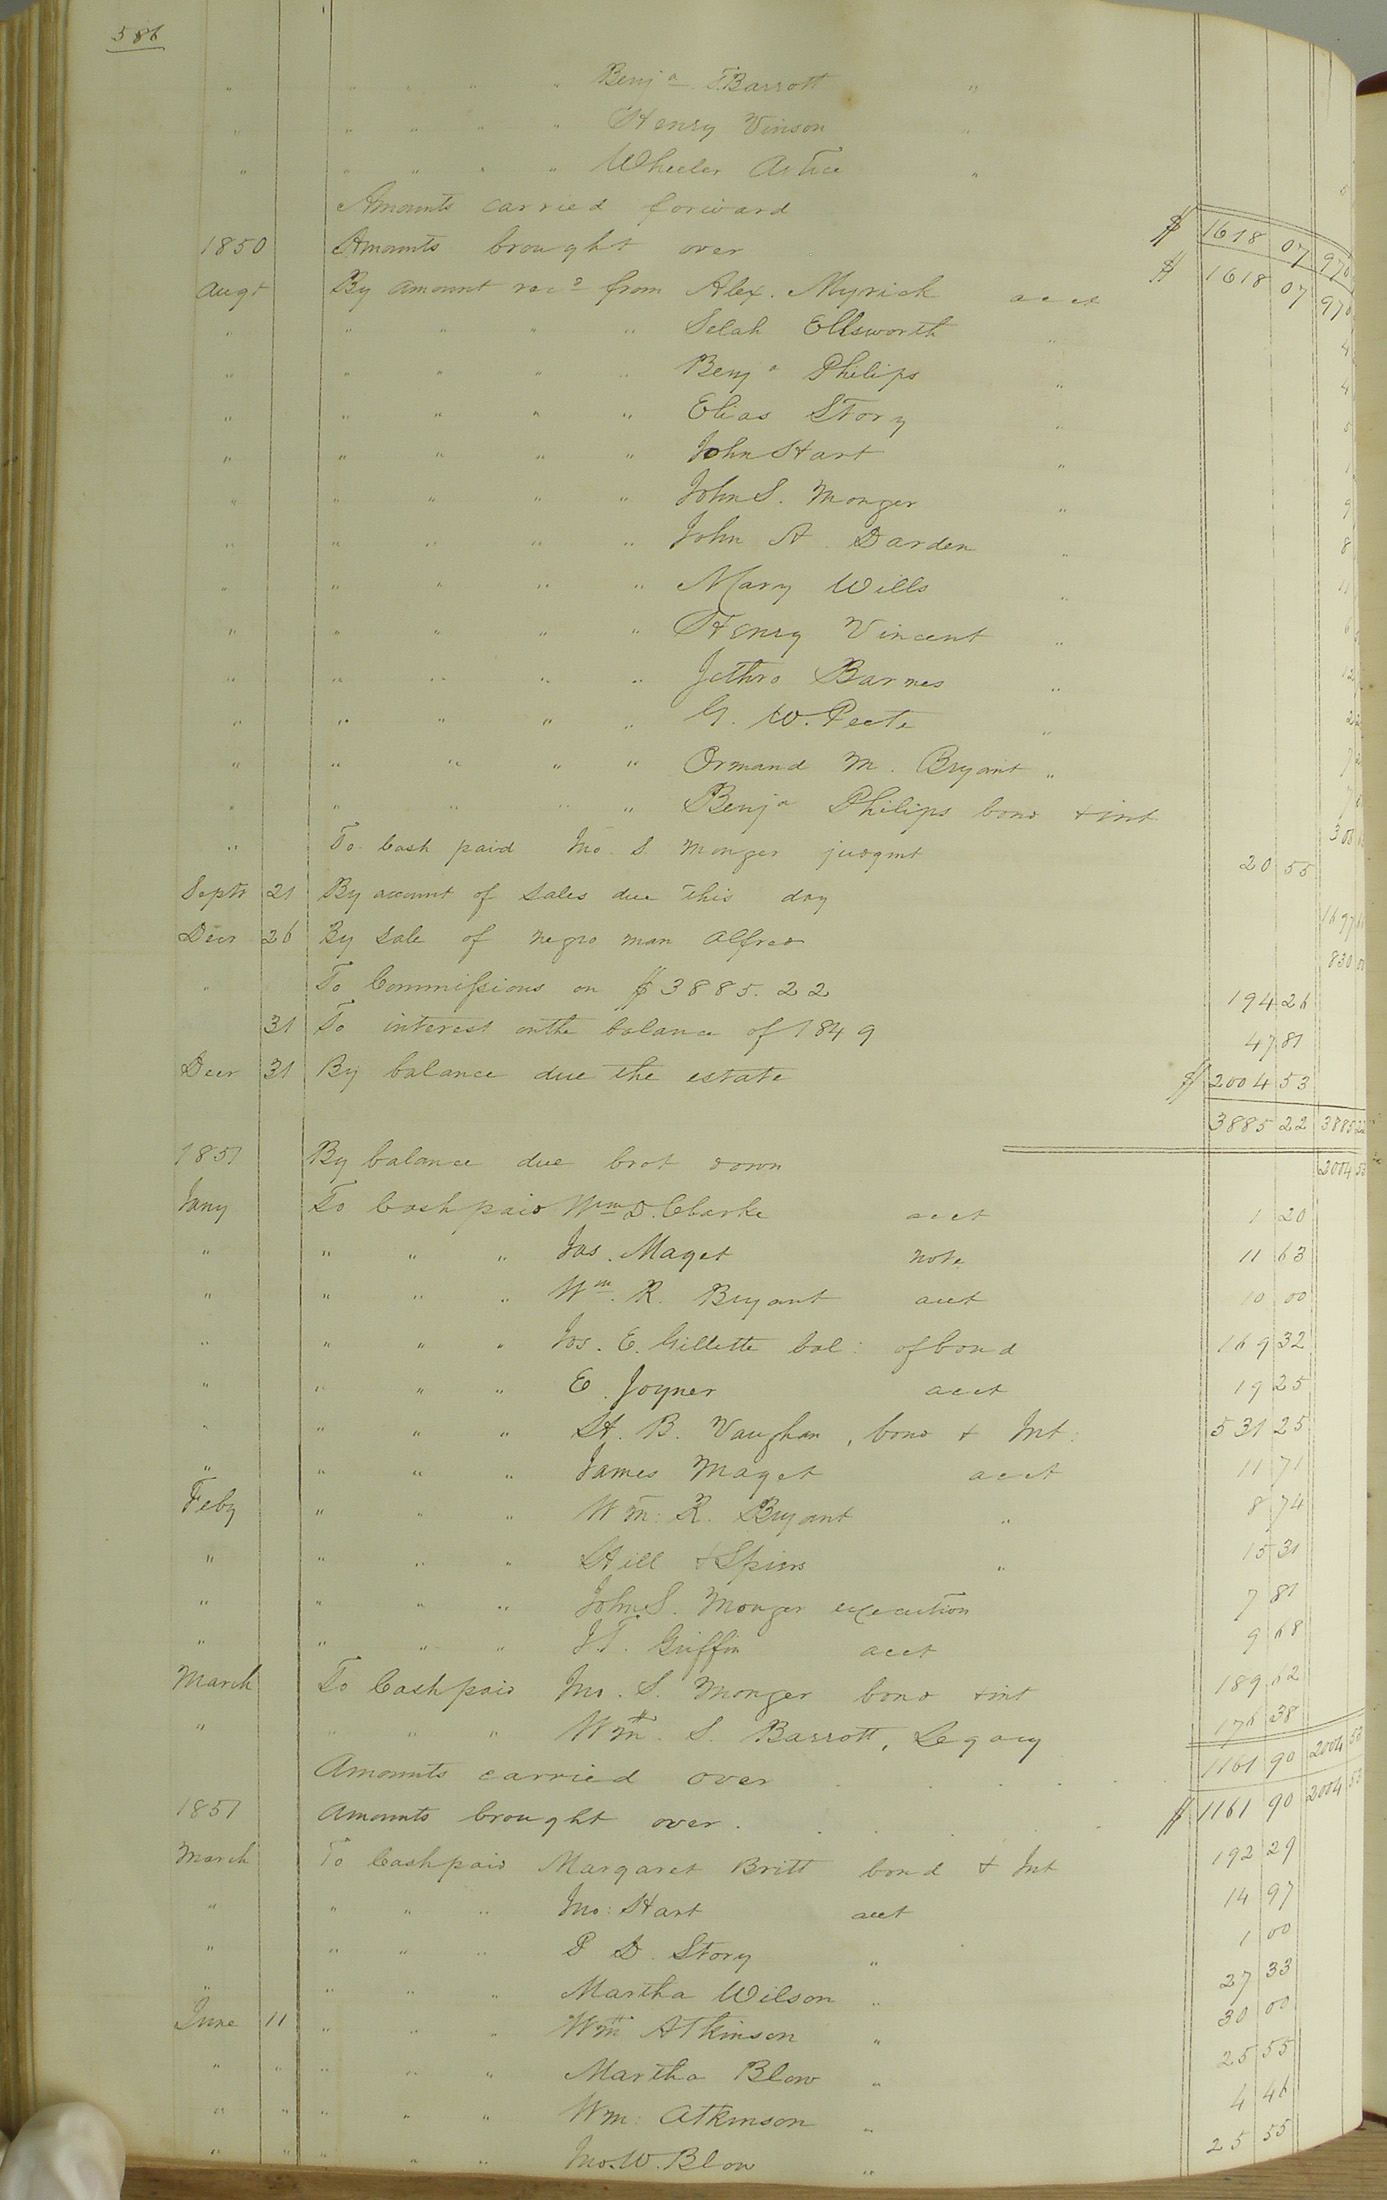 586
" " " " " Benja T. Barrott "
" " " " " Henry Vinson "
" " " " " Wheeler "
Amounts carried forward $ 1618 07 970
1850 Amounts brought over $ 1618 07 970
Augt By amount recd from Alex. Myrick acct
" " " " " Selah Ellsworth " 4
" " " " " Benja Philips " 4
" " " " " Elias Story "
" " " " " John Hart "
" " " " " John S. Monger " 9
" " " " " John A. Darden " 8
" " " " " Mary Wills "
" " " " " Henry Vincent "
" " " " " Jethro Barnes " 12
" " " " " G. W. Peete "
" " " " " Ormand M. Bryant "
" " " " " Benja Philips bond + int
" To Cash paid Jno. S. Monger judgmt 20 55
Septr 21 By account of sales due this day 1697
Decr 26 By sale of negro man Alfred 830
" To Commissions on $3885.22 194 26
31 To interest on the balance of 1849 47 81
Decr 31 By balance due the estate $ 2004 53
3885 22 3885 22
1851 By balance due brot down 2004 53
Jany To Cash paid Wm D. Clarke acct 1 20
" " " " Jas. Maget note 11 63
" " " " Wm. R. Bryant acct 10 00
" " " " Jos. E. Gillette bal: of bond 169 32
" " " " E. Joyner acct 19 25
" " " " H. B. Vaughan, bond + Int: 531 25
" " " " James Maget acct 11 71
Feby " " " Wm: R. Bryant " 8 74
" " " " Hill & Spiers " 15 31
" " " " John S. Monger execution 7 81
" " " " J. T. Griffin acct 9 68
March To Cash paid Jno. S. Monger bond + int 189 62
" " " " Wm. S. Barrott, Legacy 176 38
Amounts carried over . . . . 1161 90 2004 53
1851 Amounts brought over . . . . $ 1161 90 2004 53
March To Cash paid Margaret Britt bond & Int 192 29
" " " " Jno: Hart acct 14 97
" " " " P D. Story " 1 00
" " " " Martha Wilson " 27 33
June 11 " " " Wm Atkinson " 30 00
" " " " " Martha Blow " 25 55
" " " " " Wm: Atkinson " 4 46
" " " " " Jno. W. Blow " 25 55